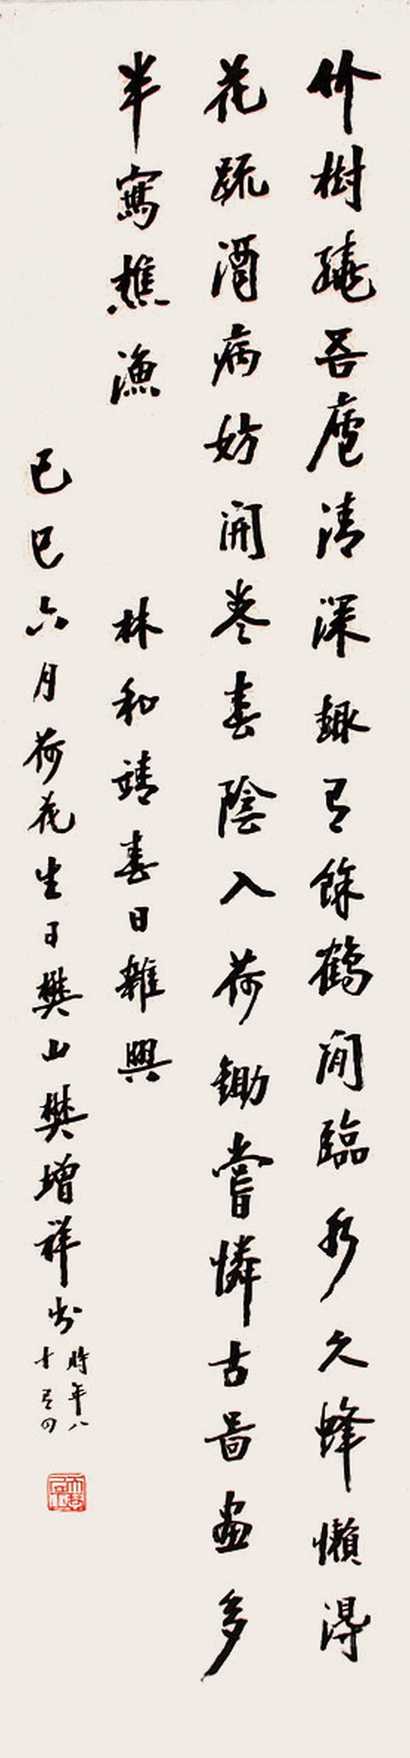 竹樹繞吾廬清深趣有餘鶴閒臨水久蜂懶得
花疏酒病妨開卷春陰入荷鋤嘗憐古圖畫多
半寫樵漁
林和靖春日雜興
己巳六月荷花生日樊山樊增祥書時年八
十有四